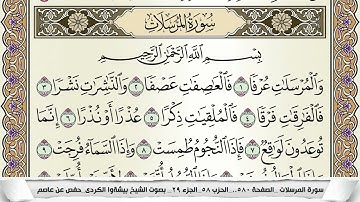 سُورَةُ المُرْسَلَاتِ
بِسْمِ اللَّهِ الرَّحْمَٰنِ الرَّحِيمِ
وَالْمُرْسَلَاتِ عُرْفًا ١ فَالْعَاصِفَاتِ عَصْفًا ٢ وَالنَّاشِرَاتِ نَشْرًا ٣
فَالْفَارِقَاتِ فَرْقًا ٤ فَالْمُلْقِيَاتِ ذِكْرًا ٥ عُذْرًا أَوْ نُذْرًا ٦ إِنَّمَا
تُوعَدُونَ لَوَاقِعٌ ٧ فَإِذَا النُّجُومُ طُمِسَتْ ٨ وَإِذَا السَّمَاءُ فُرِجَتْ ٩
سورة المرسلات .. الصفحة ٥٨٠.. الحزب ٥٨.. الجزء ٢٩.. بصوت الشيخ بيشةوا الكردى.. حفص عن عاصم